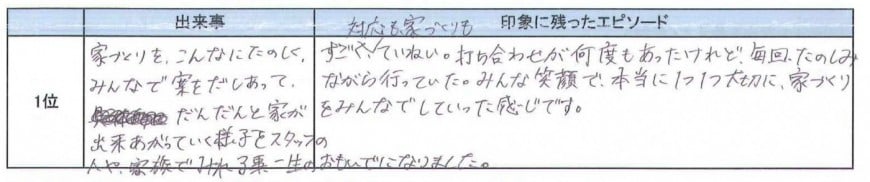 出来事
印象に残ったエピソード
1位
家づくりを、こんなにたのしく、
みんなで案をだしあって、
だんだんと家が
出来あがっていく様子をスタッフの
人や、家族でみれる事一生のおもいでになりました。
対応も、家づくりも
すごく、ていねい。打ち合わせが何度もあったけれど、毎回、たのしみ
ながら行っていた。みんな笑顔で、本当に1つ1つ大切に、家づくり
をみんなでしていった感じです。